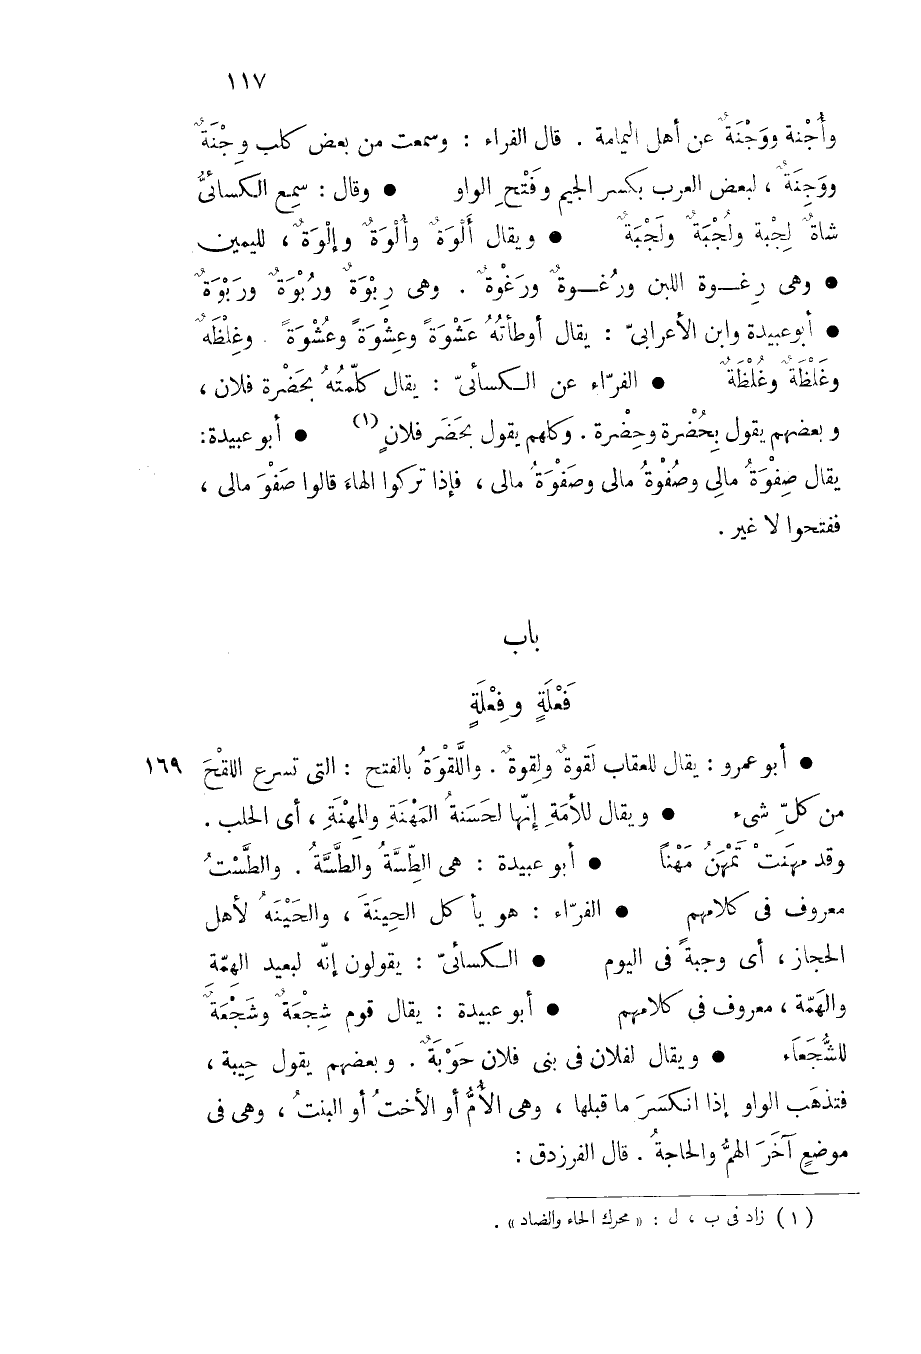 ١١٧
وأُجْنة ووَجْنَةٌ عن أهل اليمامة . قال الفراء : وسمعت من بعض كلب وِجْنَةٌ
ووَجِنَةٌ ، لبعض العرب بكسر الجيم وفَتْحِ الواو ● وقال : سمِع الكسائىُّ
شاةٌ لِجْبة ولُجْبَةٌ ولَجْبَةٌ ● ويقال أَلْوَةٌ وأُلْوَةٌ وإلْوَةٌ ، لليمين
● وهى رِغـوة اللبن ورُغـوةٌ ورَغْوةٌ . وهى رِبْوَةٌ ورُبْوَةٌ ورَبْوَةٌ
● أبو عبيدة وابن الأعرابىّ : يقال أوطأتُهُ عَشْوَةً وعِشْوَةً وعُشْوَةً . وغِلظَه
وغَلظَةٌ وغُلظَةٌ ● الفرّاء عن الكسائىّ : يقال كلّمتُهُ بحَضْرة فلان ،
وبعضهم يقول بِحُضْرة وحِضْرة . وكلهم يقول بحَضَر فلانٍ (١) ● أبو عبيدة:
يقال صِفْوَةُ مالِى وصُفْوةُ مالى وصَفْوَةُ مالى ، فإذا تركوا الهاءَ قالوا صَفْوَ مالى ،
ففتحوا لا غير .
باب
فَعْلَةٍ وفِعْلَةٍ
● أبو عمرو : يقال للعقاب لَقوةٌ ولِقوةٌ . واللَّقْوَةُ بالفتح : التى تسرع اللقْحَ ١٦٩
من كلّ شىء ● ويقال للأمَةِ إنّها لحَسَنةُ المَهْنَةِ والمِهْنَةِ ، أى الحلب .
وقد مهَنَتْ تَمْهَنُ مَهْناً ● أبو عبيدة : هى الطِّسَّةُ والطَّسَّةُ . والطَّسْتُ
معروف فى كلامهم ● الفرّاء : هو يأكل الحِينَةَ ، والحَيْنَهُ لأهل
الحجاز ، أى وجبةً فى اليوم ● الكسائىّ : يقولون إنّه لبعيد الهِمّةِ
والهَمّة ، معروف فى كلامهم ● أبو عبيدة : يقال قوم شِجْعَةٌ وشَجْعَةٌ
للشُّجَعَاء ● ويقال لفلان فى بنى فلان حَوْبَةٌ . وبعضهم يقول حِيبة ،
فتذهَب الواو إذا انكسَرَ ما قبلها ، وهى الأمُّ أو الأختُ أو البنتُ ، وهى فى
موضعٍ آخَرَ الهمُّ والحاجةُ . قال الفرزدق :
(١) زاد فى ب ، ل : « محرك الحاء والضاد » .